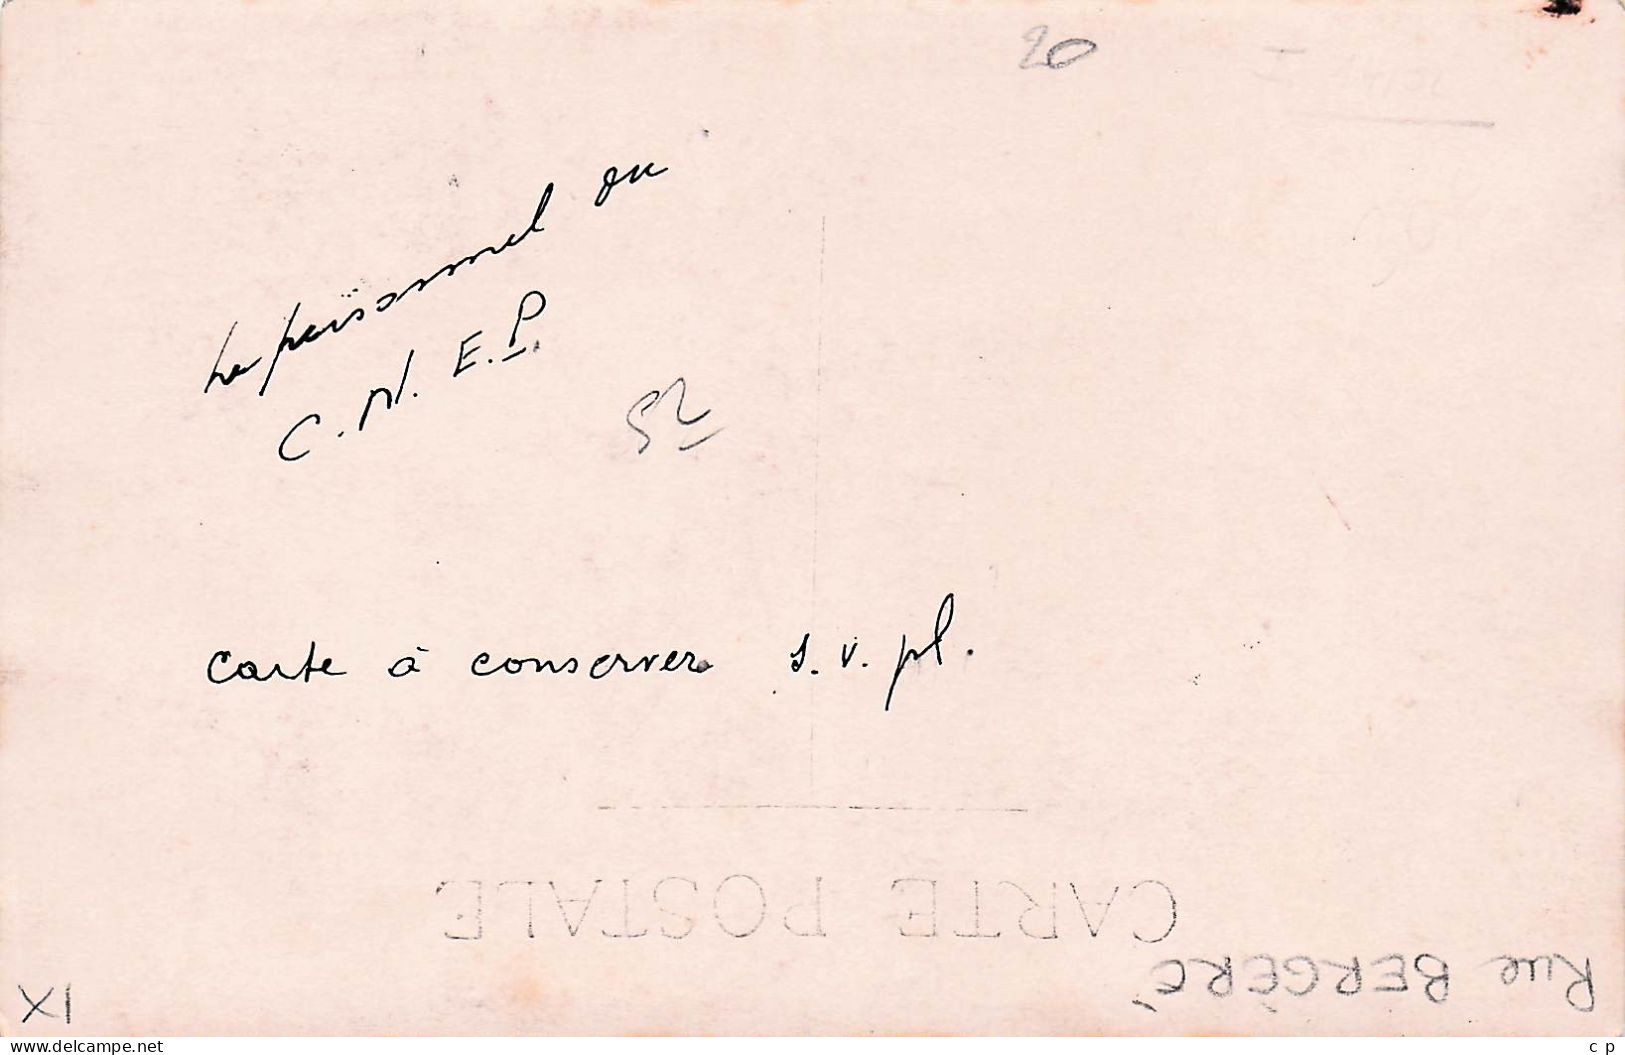 20
Le personnel du
C.N.E.P.
52
Carte à conserver s.v.pl.
CARTE POSTALE
Rue BERGÈRE
IX
www.delcampe.net
c p